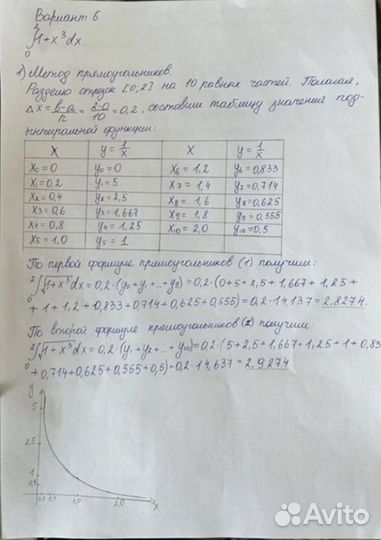 Вариант 6
2
∫√1+x³dx.
0
1) Метод прямоугольников.
Разделю отрезок [0;2] на 10 равных частей. Полагая,
Δx = b-a/n = 2-0/10 = 0,2, составим таблицу значений под-
ынтегральной функции:
x y = 1/x x y = 1/x
x₀ = 0 y₀ = 0 x₆ = 1,2 y₆ = 0,833
x₁ = 0,2 y₁ = 5 x₇ = 1,4 y₇ = 0,714
x₂ = 0,4 y₂ = 2,5 x₈ = 1,6 y₈ = 0,625
x₃ = 0,6 y₃ = 1,667 x₉ = 1,8 y₉ = 0,555
x₄ = 0,8 y₄ = 1,25 x₁₀ = 2,0 y₁₀ = 0,5
x₅ = 1,0 y₅ = 1
По первой формуле прямоугольников (1) получим:
2
∫√1+x³dx = 0,2·(y₀+y₁+...+y₉) = 0,2·(0+5+2,5+1,667+1,25+
0
+1+1,2+0,833+0,714+0,625+0,555) = 0,2·14,137 = 2,8274.
По второй формуле прямоугольников (2) получим:
2
∫√1+x³dx = 0,2·(y₁+y₂+...+y₁₀) = 0,2·(5+2,5+1,667+1,25+1+0,83
0
+0,714+0,625+0,555+0,5) = 0,2·14,637 = 2,9274
y
5
2,5
1
1,0
2,0
x
Avito